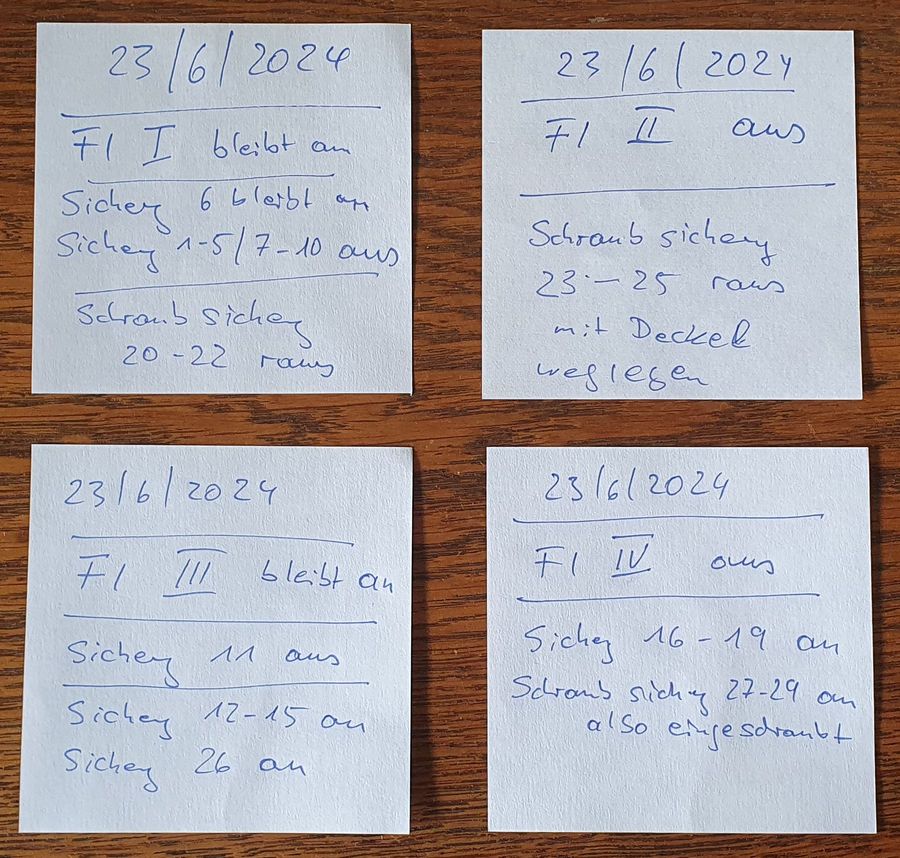 23/6/2024
FI I bleibt an
Sicherg 6 bleibt an
Sicherg 1-5/7-10 aus
Schraubsicherg
20-22 raus
23/6/2024
FI II aus
Schraubsicherg
23-25 raus
mit Deckel
weglegen
23/6/2024
FI III bleibt an
Sicherg 11 aus
Sicherg 12-15 an
Sicherg 26 an
23/6/2024
FI IV aus
Sicherg 16-19 an
Schraubsicherg 27-29 an
also eingeschraubt